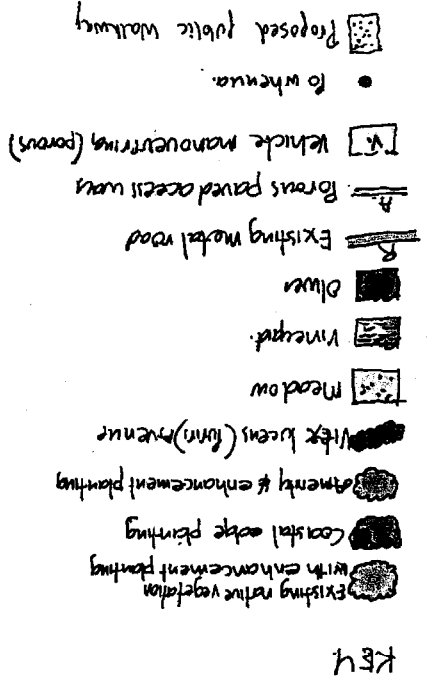 KEY.
Existing native vegetation
with enhancement planting
Coastal edge planting
Amenity & enhancement planting
Vitex lucens (Puriri) Avenue
Meadow
Vineyard.
Olives
R
Existing metal road
A.
Porous paved access ways
V. Vehicle manoeuvring (porous)
Po whenua.
Proposed public walkway